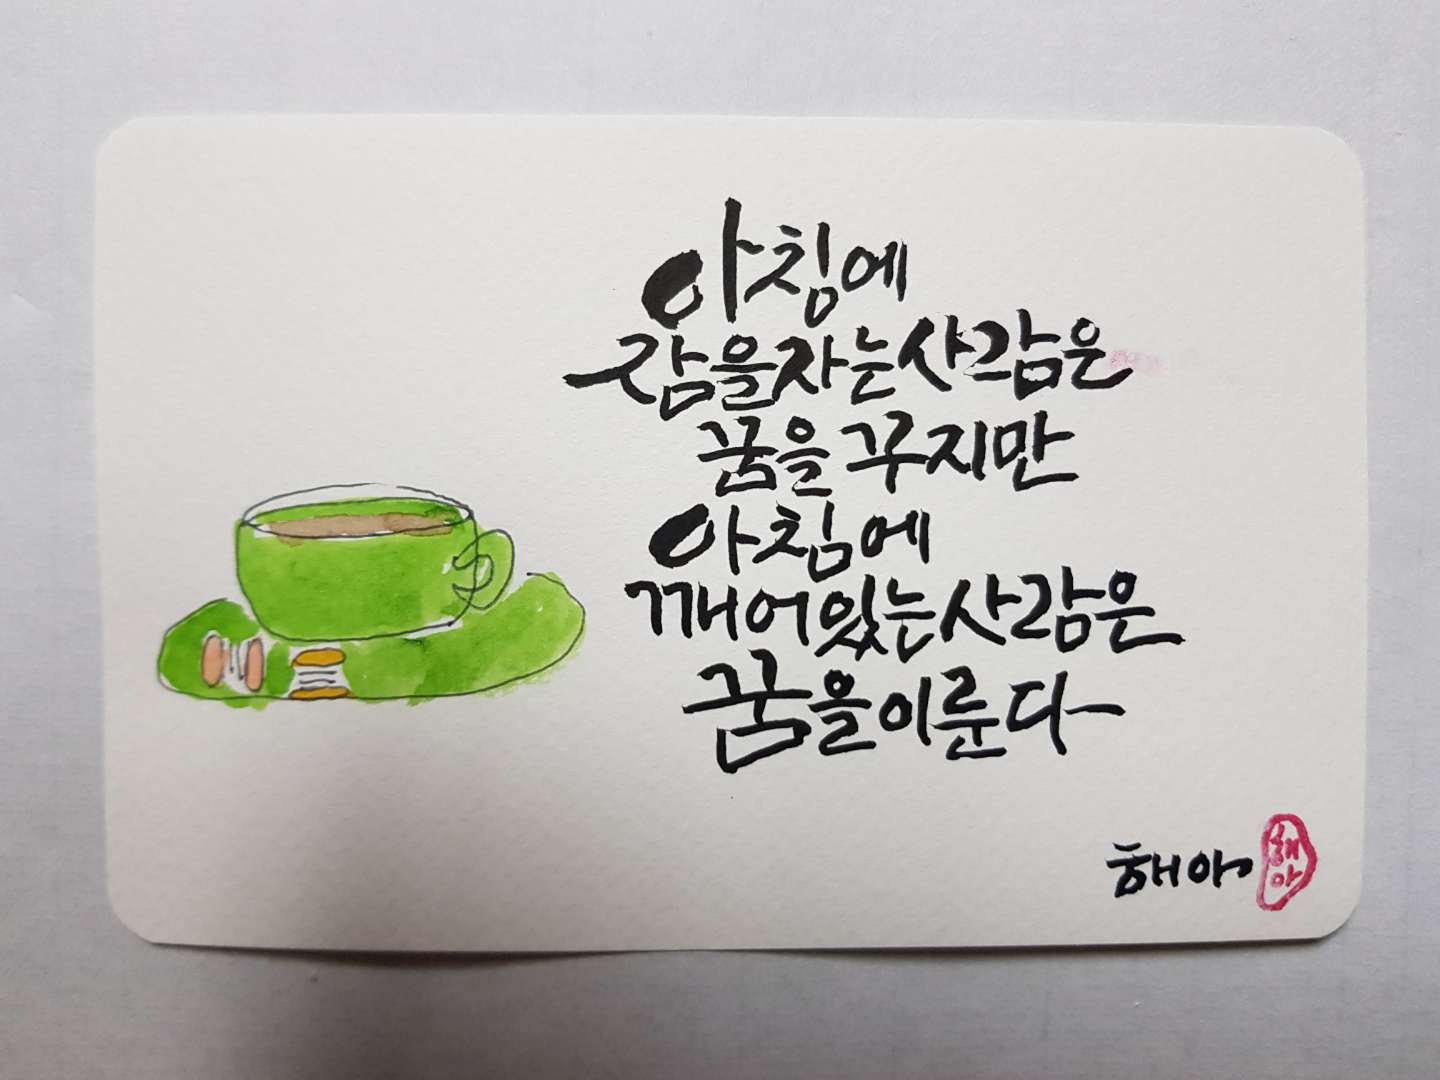 아침에
잠을자는사람은
꿈을 꾸지만
아침에
깨어있는사람은
꿈을이룬다
해아
해아